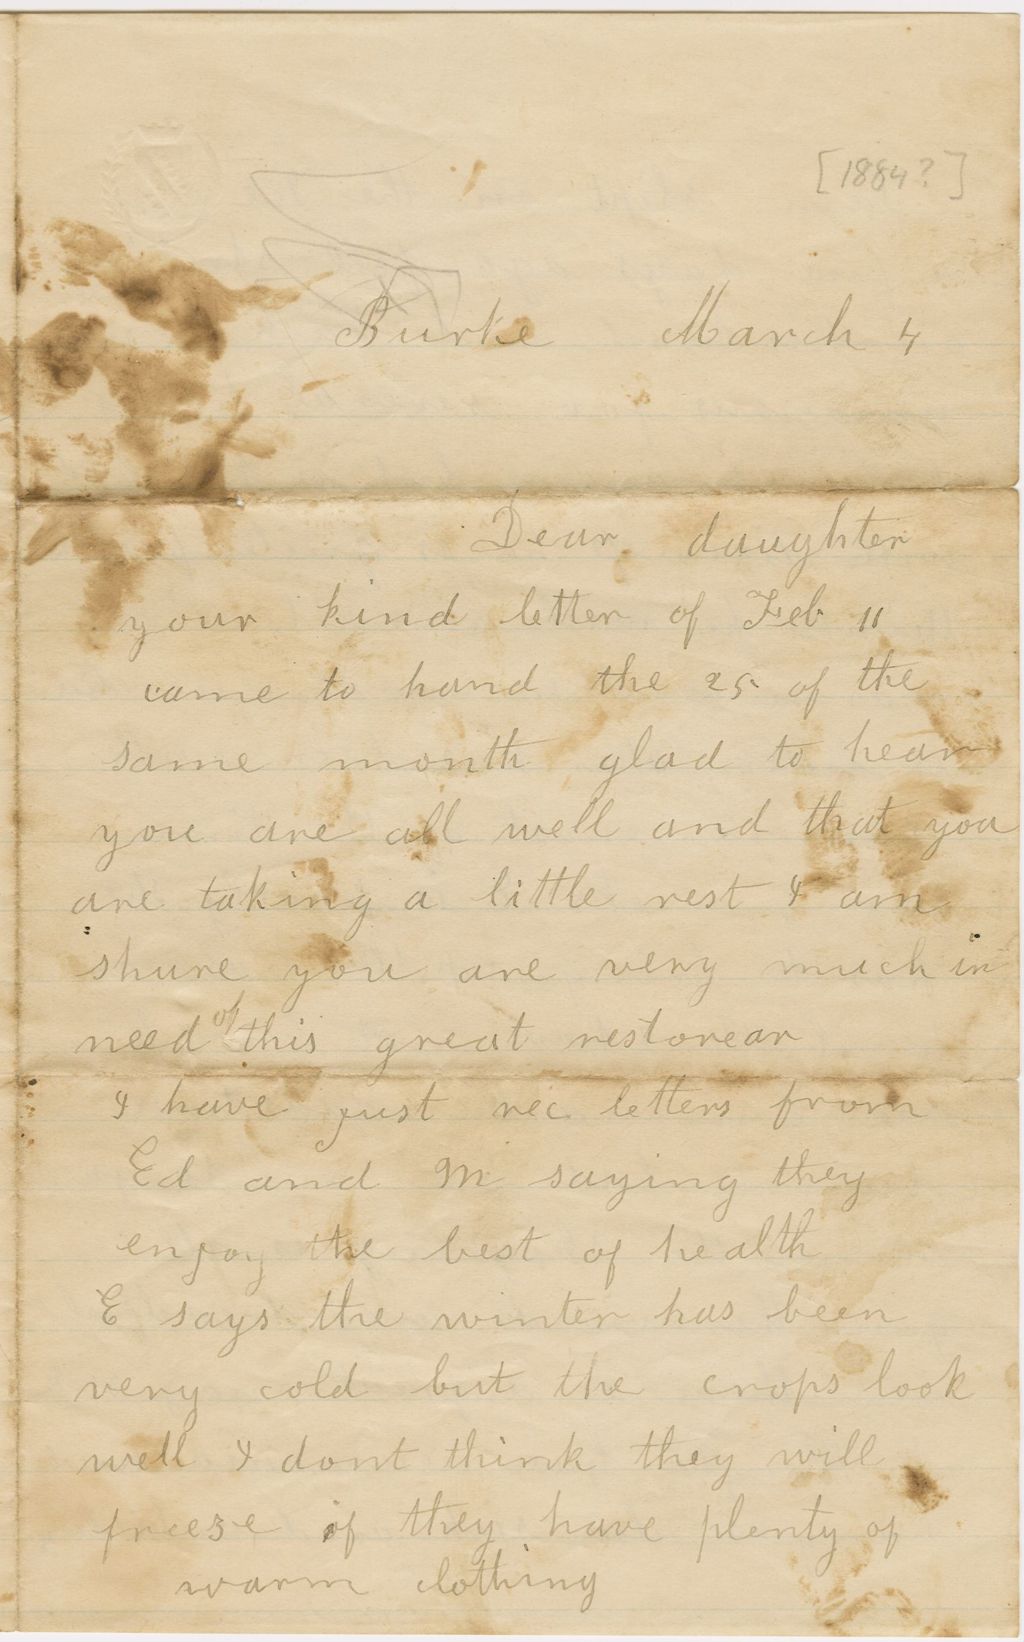 [1884?]
Burke March 4
Dear daughter
your kind letter of Feb 11
came to hand the 25 of the
same month glad to hear
you are all well and that you
are taking a little rest I am
shure you are very much in
need of this great restorear
I have just rec letters from
Ed and M saying they
enjoy the best of health
E says the winter has been
very cold but the crops look
well I dont think they will
freeze if they have plenty of
warm clothing